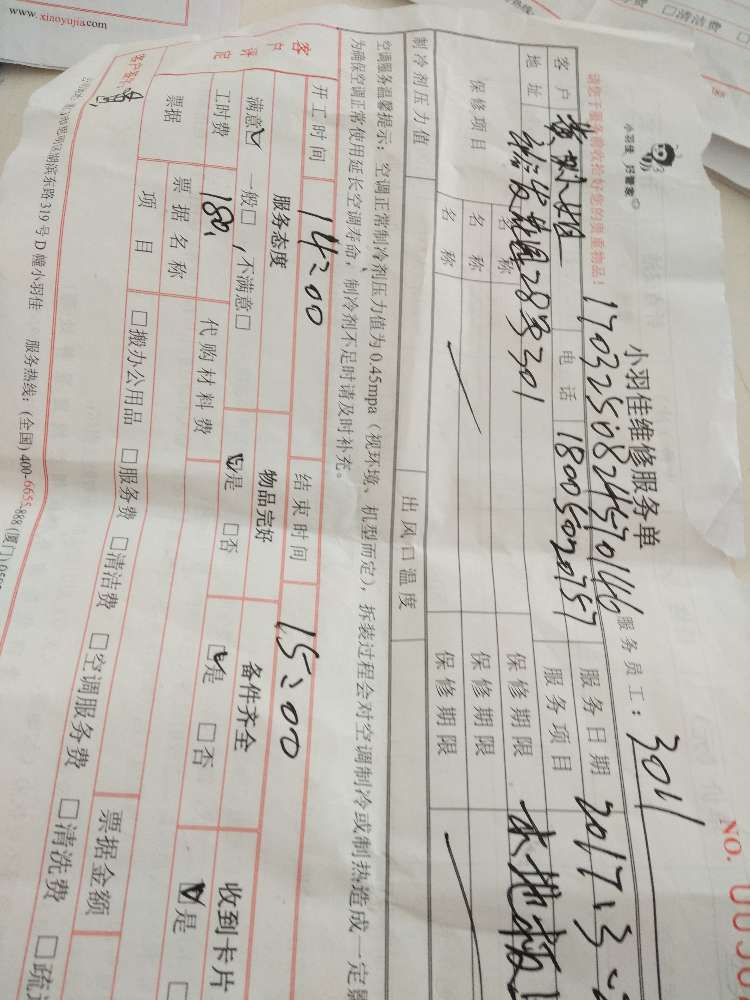 www.xiaoyujia.com
□清洁费
NO.
小羽佳 好管家
小羽佳维修服务单
1703250824570146
服务员工:
301
请您于服务前收拾好您的贵重物品!
客户
电话
服务日期
2017.3
地址
28号301
18005020757
服务项目
木地板
保修项目
名称
保修期限
名称
保修期限
名称
保修期限
制冷剂压力值
出风口温度
空调服务温馨提示:空调正常制冷剂压力值为0.45mpa(视环境、机型而定),拆装过程会对空调制冷或制热造成一定
为确保空调正常使用延长空调寿命,制冷剂不足时请及时补充。
开工时间
14:00
结束时间
15:00
客户评定
服务态度
物品完好
备件齐全
收到卡片
满意☑ 一般□ 不满意□
☑是 □否
☑是 □否
☑是 □
工时费
180
代购材料费
票据
票据名称
票据金额
项目
□搬办公用品 □服务费 □清洁费 □空调服务费 □清洗费 □疏
客户签名:
湖滨东路319号D幢小羽佳 服务热线:(全国)400-6655-888(厦门)